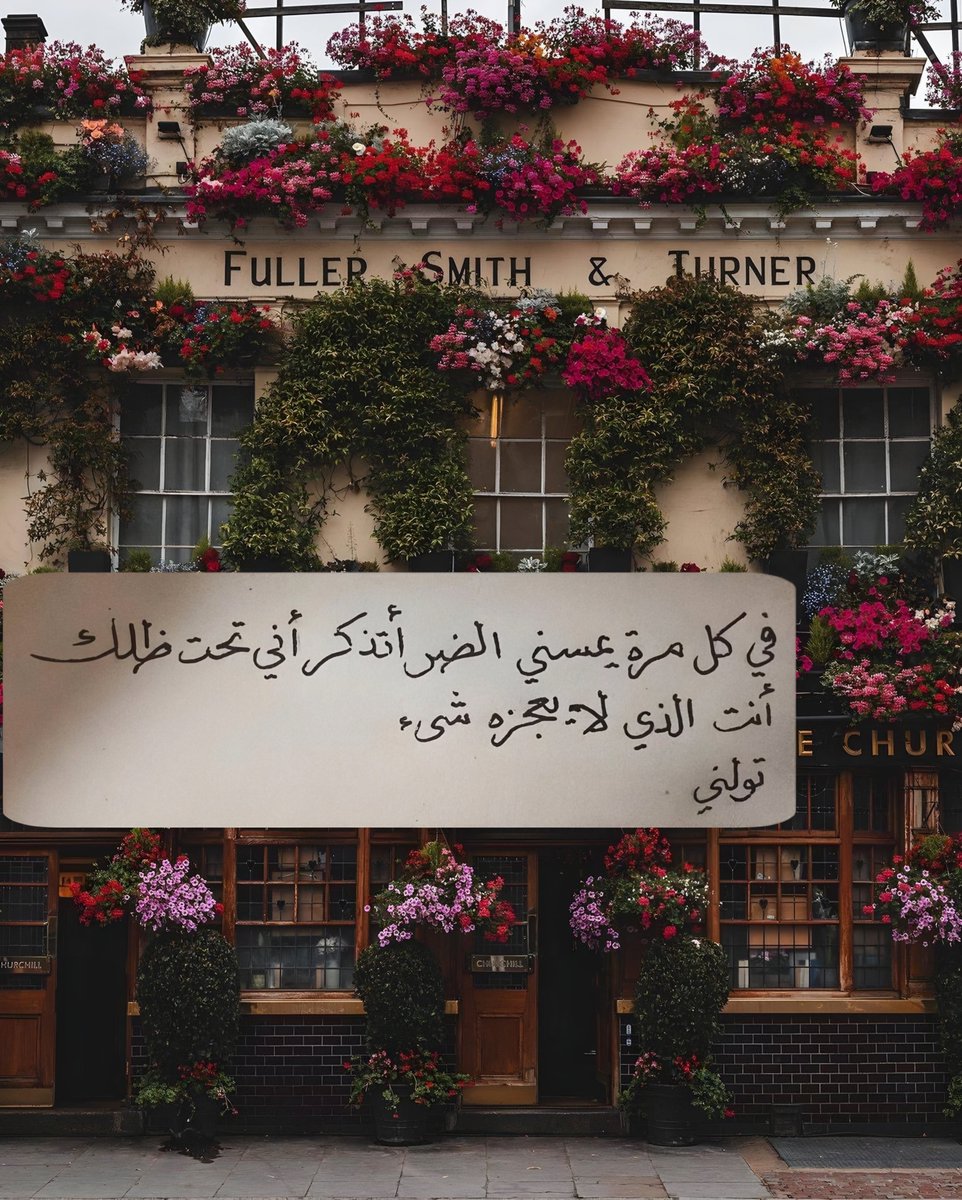 FULLER SMITH & TURNER
في كل مرة يمسني الضر أتذكر أني تحت ظلك
أنت الذي لا يعجزه شيء
تولني
E CHUR
CHURCHILL
CHURCHILL